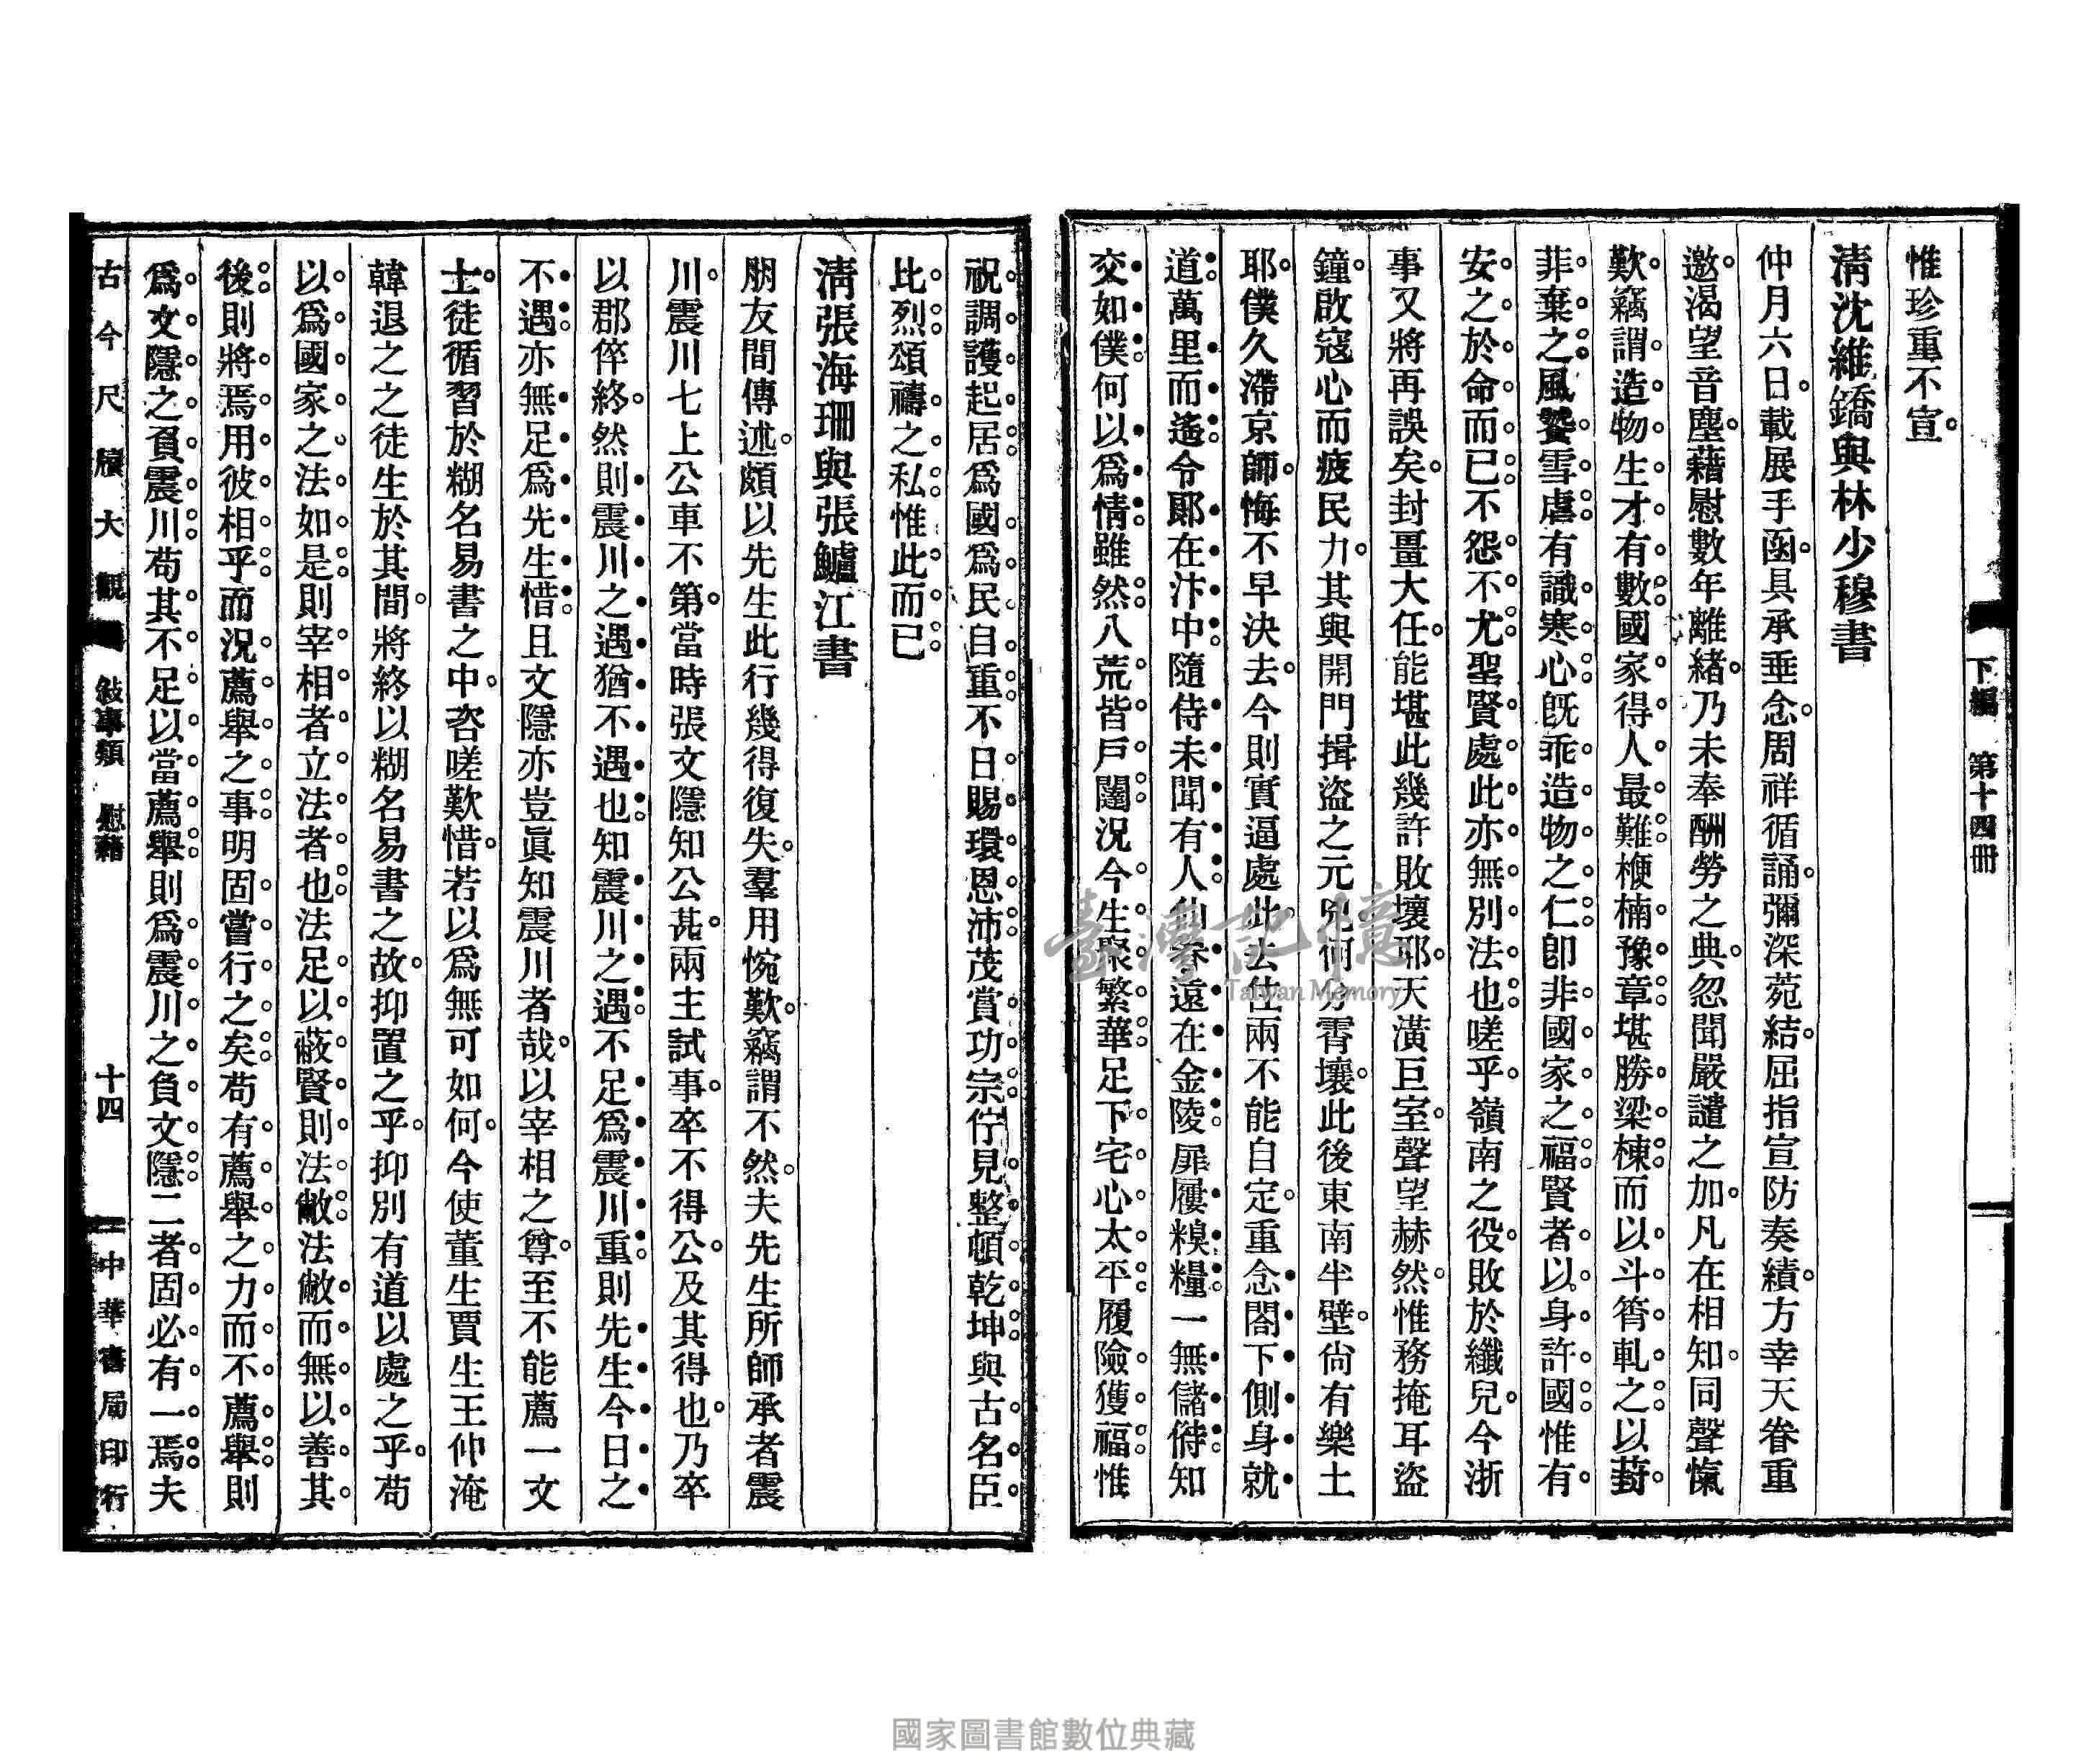 下編　第十四冊
惟珍重不宣。
清沈維鐈與林少穆書
仲月六日。載展手函。具承垂念。周祥循誦。彌深菀結。屈指宣防奏績。方幸天眷重
邀。渴望音塵。藉慰數年離緒。乃未奉酬勞之典。忽聞嚴譴之加。凡在相知。同聲愾
歎。竊謂造物生才有數。國家得人最難。楩楠豫章。堪勝梁棟。而以斗筲軋之。以葑
菲棄之。風饕雪虐。有識寒心。旣乖造物之仁。卽非國家之福。賢者以身許國。惟有
安之於命而已。不怨不尤。聖賢處此。亦無別法也。嗟乎。嶺南之役。敗於纖兒。今浙
事又將再誤矣。封畺大任。能堪此幾許敗壞耶。天潢巨室。聲望赫然。惟務掩耳盜
鐘。啟寇心而疲民力。其與開門揖盜之元兇。何分霄壤。此後東南半壁。尙有樂土
耶。僕久滯京師。悔不早決去。今則實逼處此。去住兩不能自定。重念閤下側身就
道。萬里而遙。令郞在汴中隨侍。未聞有人。仙眷遠在金陵。屝屨糗糧。一無儲偫。知
交如僕。何以爲情。雖然。八荒皆戶闥。況今生聚繁華。足下宅心太平。履險獲福。惟
祝調護起居。爲國爲民自重。不日賜環恩沛。茂賞功宗。佇見整頓乾坤。與古名臣
比烈。頌禱之私。惟此而已。
清張海珊與張鱸江書
朋友間傳述。頗以先生此行幾得復失。羣用惋歎。竊謂不然。夫先生所師承者震
川。震川七上公車不第。當時張文隱知公甚。兩主試事。卒不得公。及其得也。乃卒
以郡倅終。然則震川之遇。猶不遇也。知震川之遇。不足爲震川重。則先生今日之
不遇。亦無足爲先生惜。且文隱亦豈眞知震川者哉。以宰相之尊。至不能薦一文
士。徒循習於糊名易書之中。咨嗟歎惜。若以爲無可如何。今使董生賈生王仲淹
韓退之之徒。生於其間。將終以糊名易書之故。抑置之乎。抑別有道以處之乎。苟
以爲國家之法如是。則宰相者。立法者也。法足以蔽賢。則法敝。法敝而無以善其
後。則將焉用彼相乎。而況薦舉之事。明固嘗行之矣。苟有薦舉之力而不薦舉。則
爲文隱之負震川。苟其不足以當薦舉。則爲震川之負文隱。二者固必有一焉。夫
古今尺牘大觀　敍事類　慰藉　十四　中華書局印行
臺灣記憶
Taiwan Memory
國家圖書館數位典藏